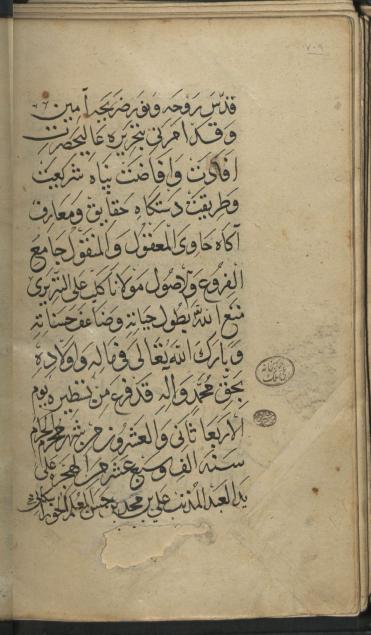 ٧٠٩
قدس روحه ونور ضريحه آمين
وقد امرني بتحريره عاليحضرت
افادت وافاضت پناه شريعت
وطريقت دستكاه حقايق ومعارف
آكاه حاوي المعقول والمنقول جامع
الفروع والاصول مولانا كلب علي التبريزي
متع الله بطول حياته وضاعف حسناته
وبارك الله تعالى في ماله واولاده
بحق محمد وآله قد فرغ من تنظيره يوم
الاربعا ثاني والعشرون من شهر محرم الحرام
سنه الف وسبع عشر من الهجرة على
يد العبد المذنب علي بن محمد بن حسن المعلم